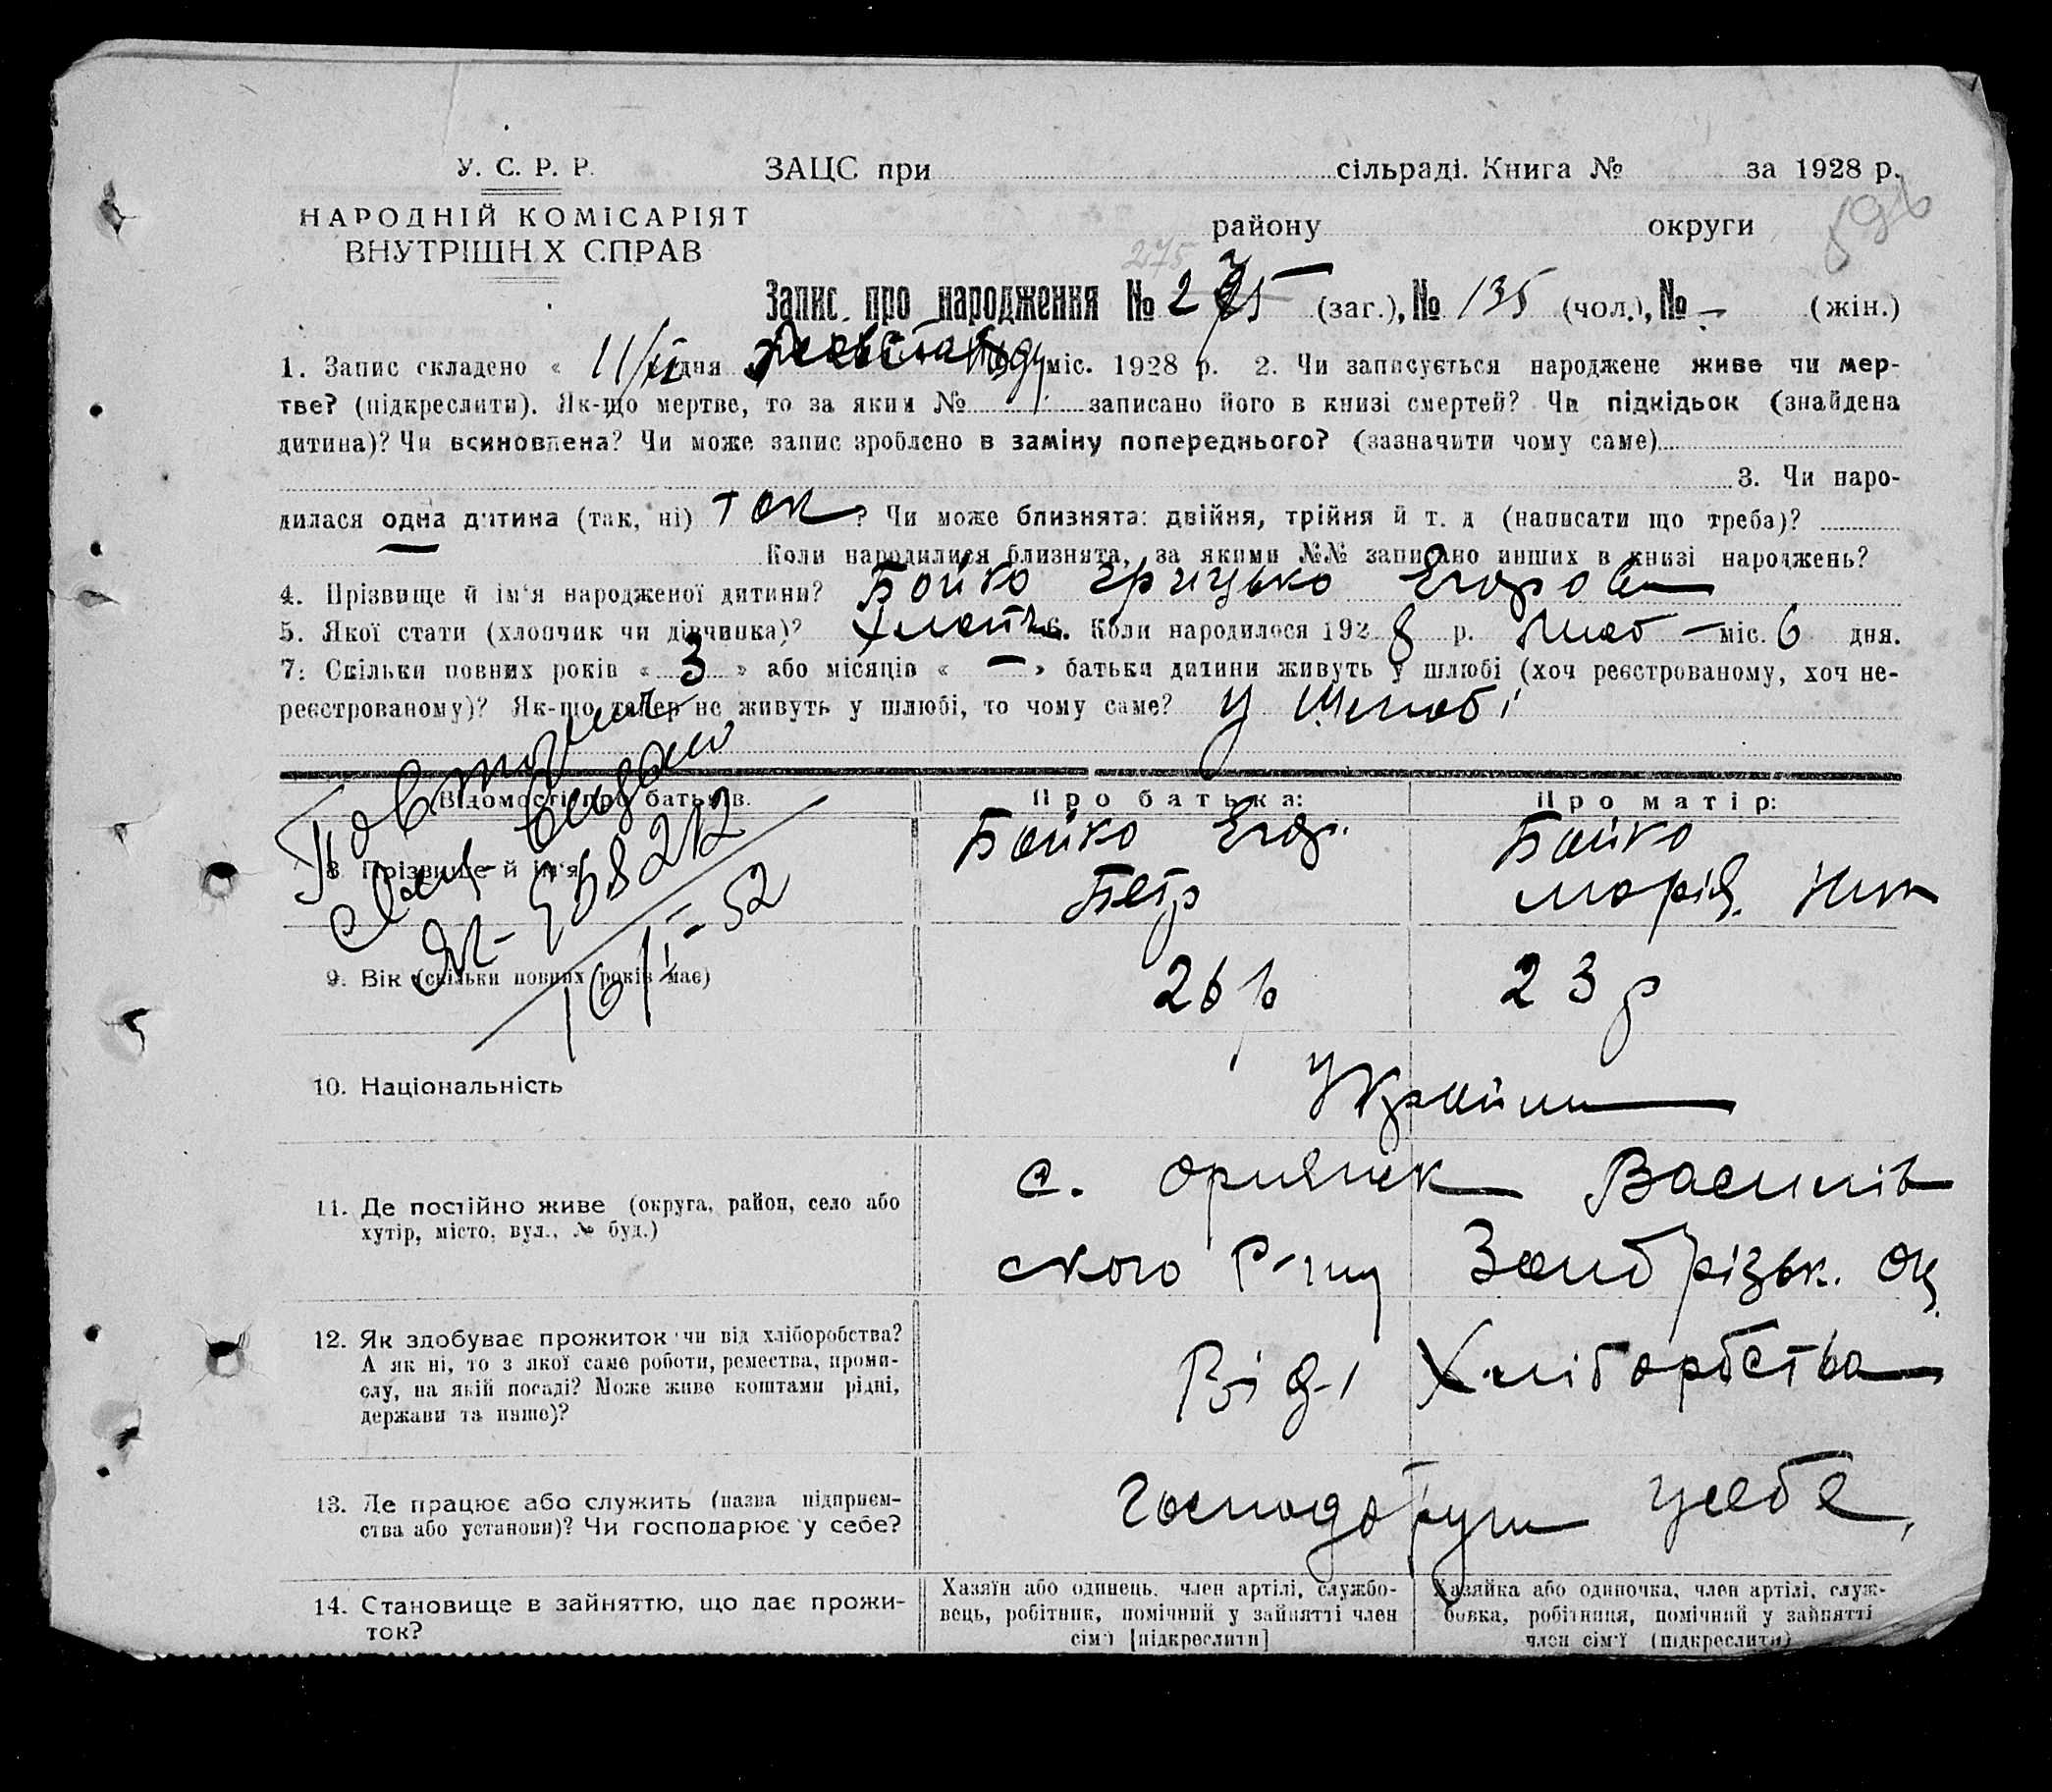 У. С. Р. Р.
НАРОДНІЙ КОМІСАРІЯТ
ВНУТРІШН Х СПРАВ
ЗАЦС при сільраді. Книга № за 1928 р.
району округи
275
Запис про народження № 275 (заг.), № 135 (чол.), № – (жін.)
1. Запис складено « 11/ дня міс. 1928 р. 2. Чи записується народжене живе чи мер-
тве? (підкреслити). Як-що мертве, то за яким № записано його в книзі смертей? Чи підкідьок (знайдена
дитина)? Чи всиновлена? Чи може запис зроблено в заміну попереднього? (зазначити чому саме)
3. Чи наро-
дилася одна дитина (так, ні) так ? Чи може близнята: двійня, трійня й т. д (написати що треба)?
Коли народилися близнята, за якими №№ записано инших в книзі народжень?
4. Прізвище й ім'я народженої дитини? Бойко Грицько Егоров
5. Якої стати (хлопчик чи дівчинка)? Хлопч 6. Коли народилося 1928 р. міс. 6 дня.
7: Скільки повних років « 3 » або місяців « – » батьки дитини живуть у шлюбі (хоч реєстрованому, хоч не-
реєстрованому)? Як-що тепер не живуть у шлюбі, то чому саме? у Шлюбі
Повторное
свид. выдано
758212
16/I-52
Відомості про батьків. Про батька: Про матір:
8. Прізвище й ім'я Бойко Егор. Петр Бойко Марія
9. Вік (скільки повних років має) 26 р 23 р
10. Національність Україин
11. Де постійно живе (округа, район, село або
хутір, місто, вул., № буд.)
с. Орлянськ Василів
ского Р-ну Запорізьк. Ок
12. Як здобуває прожиток чи від хліборобства?
А як ні, то з якої саме роботи, ремества, проми-
слу, на якій посаді? Може живе коштами рідні,
держави та инше)?
Від Хліборбства
13. Де працює або служить (назва підприєм-
ства або установи)? Чи господарює у себе?
Господарують усебе
14. Становище в зайняттю, що дає прожи-
ток?
Хазяїн або одинець, член артілі, службо-
вець, робітник, помічний у зайнятті член
сім'ї [підкреслити]
Хазяйка або одиночка, член артілі, служ-
бовка, робітниця, помічний у зайнятті
член сім'ї (підкреслити)